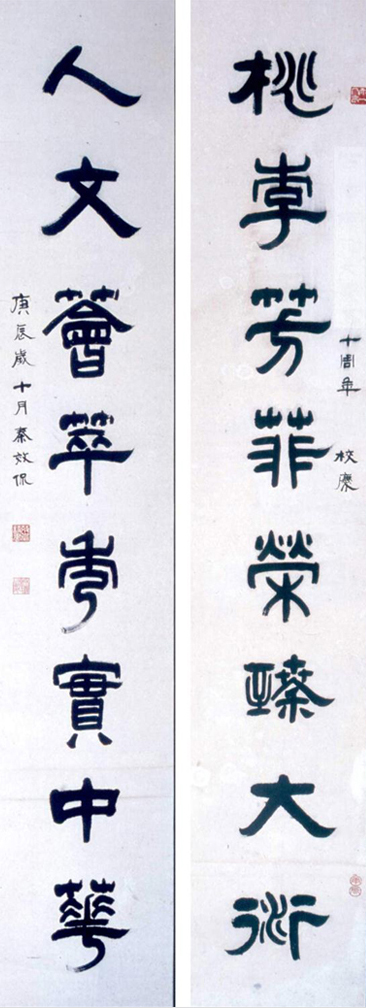 十周年 校慶
桃李芳菲榮臻大衍
人文薈萃秀實中華
庚辰歲十月秦效侃